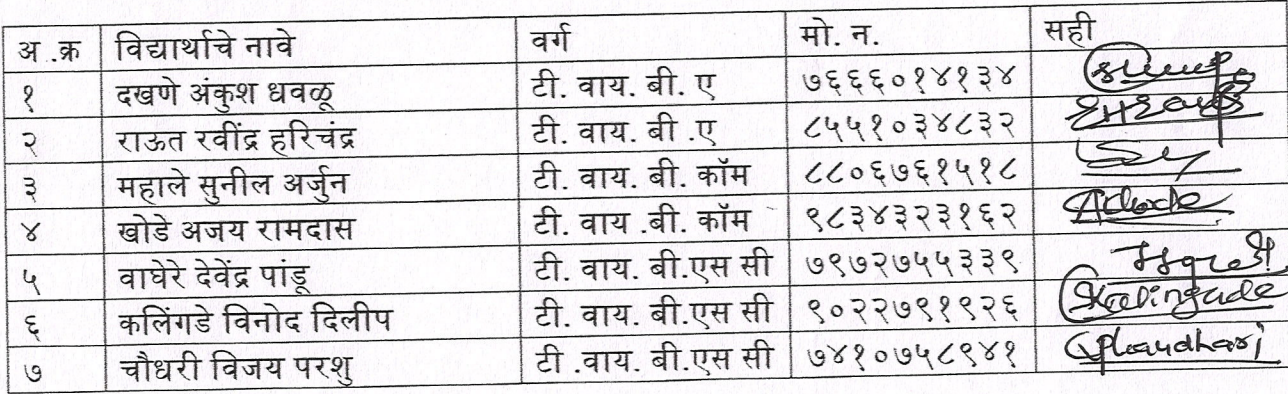 अ .क्र विद्यार्थाचे नावे वर्ग मो. न. सही
१ दखणे अंकुश धवळू टी. वाय. बी. ए ७६६६०१४१३४
२ राऊत रवींद्र हरिचंद्र टी. वाय. बी .ए ८५५१०३४८३२
३ महाले सुनील अर्जुन टी. वाय. बी. कॉम ८८०६७६१५१८
४ खोडे अजय रामदास टी. वाय .बी. कॉम ९८३४३२३१६२
५ वाघेरे देवेंद्र पांडू टी. वाय. बी.एस सी ७९७२७५५३३९
६ कलिंगडे विनोद दिलीप टी. वाय. बी.एस सी ९०२२७९१९२६ Kalingade
७ चौधरी विजय परशु टी .वाय. बी.एस सी ७४१०७५८९४१